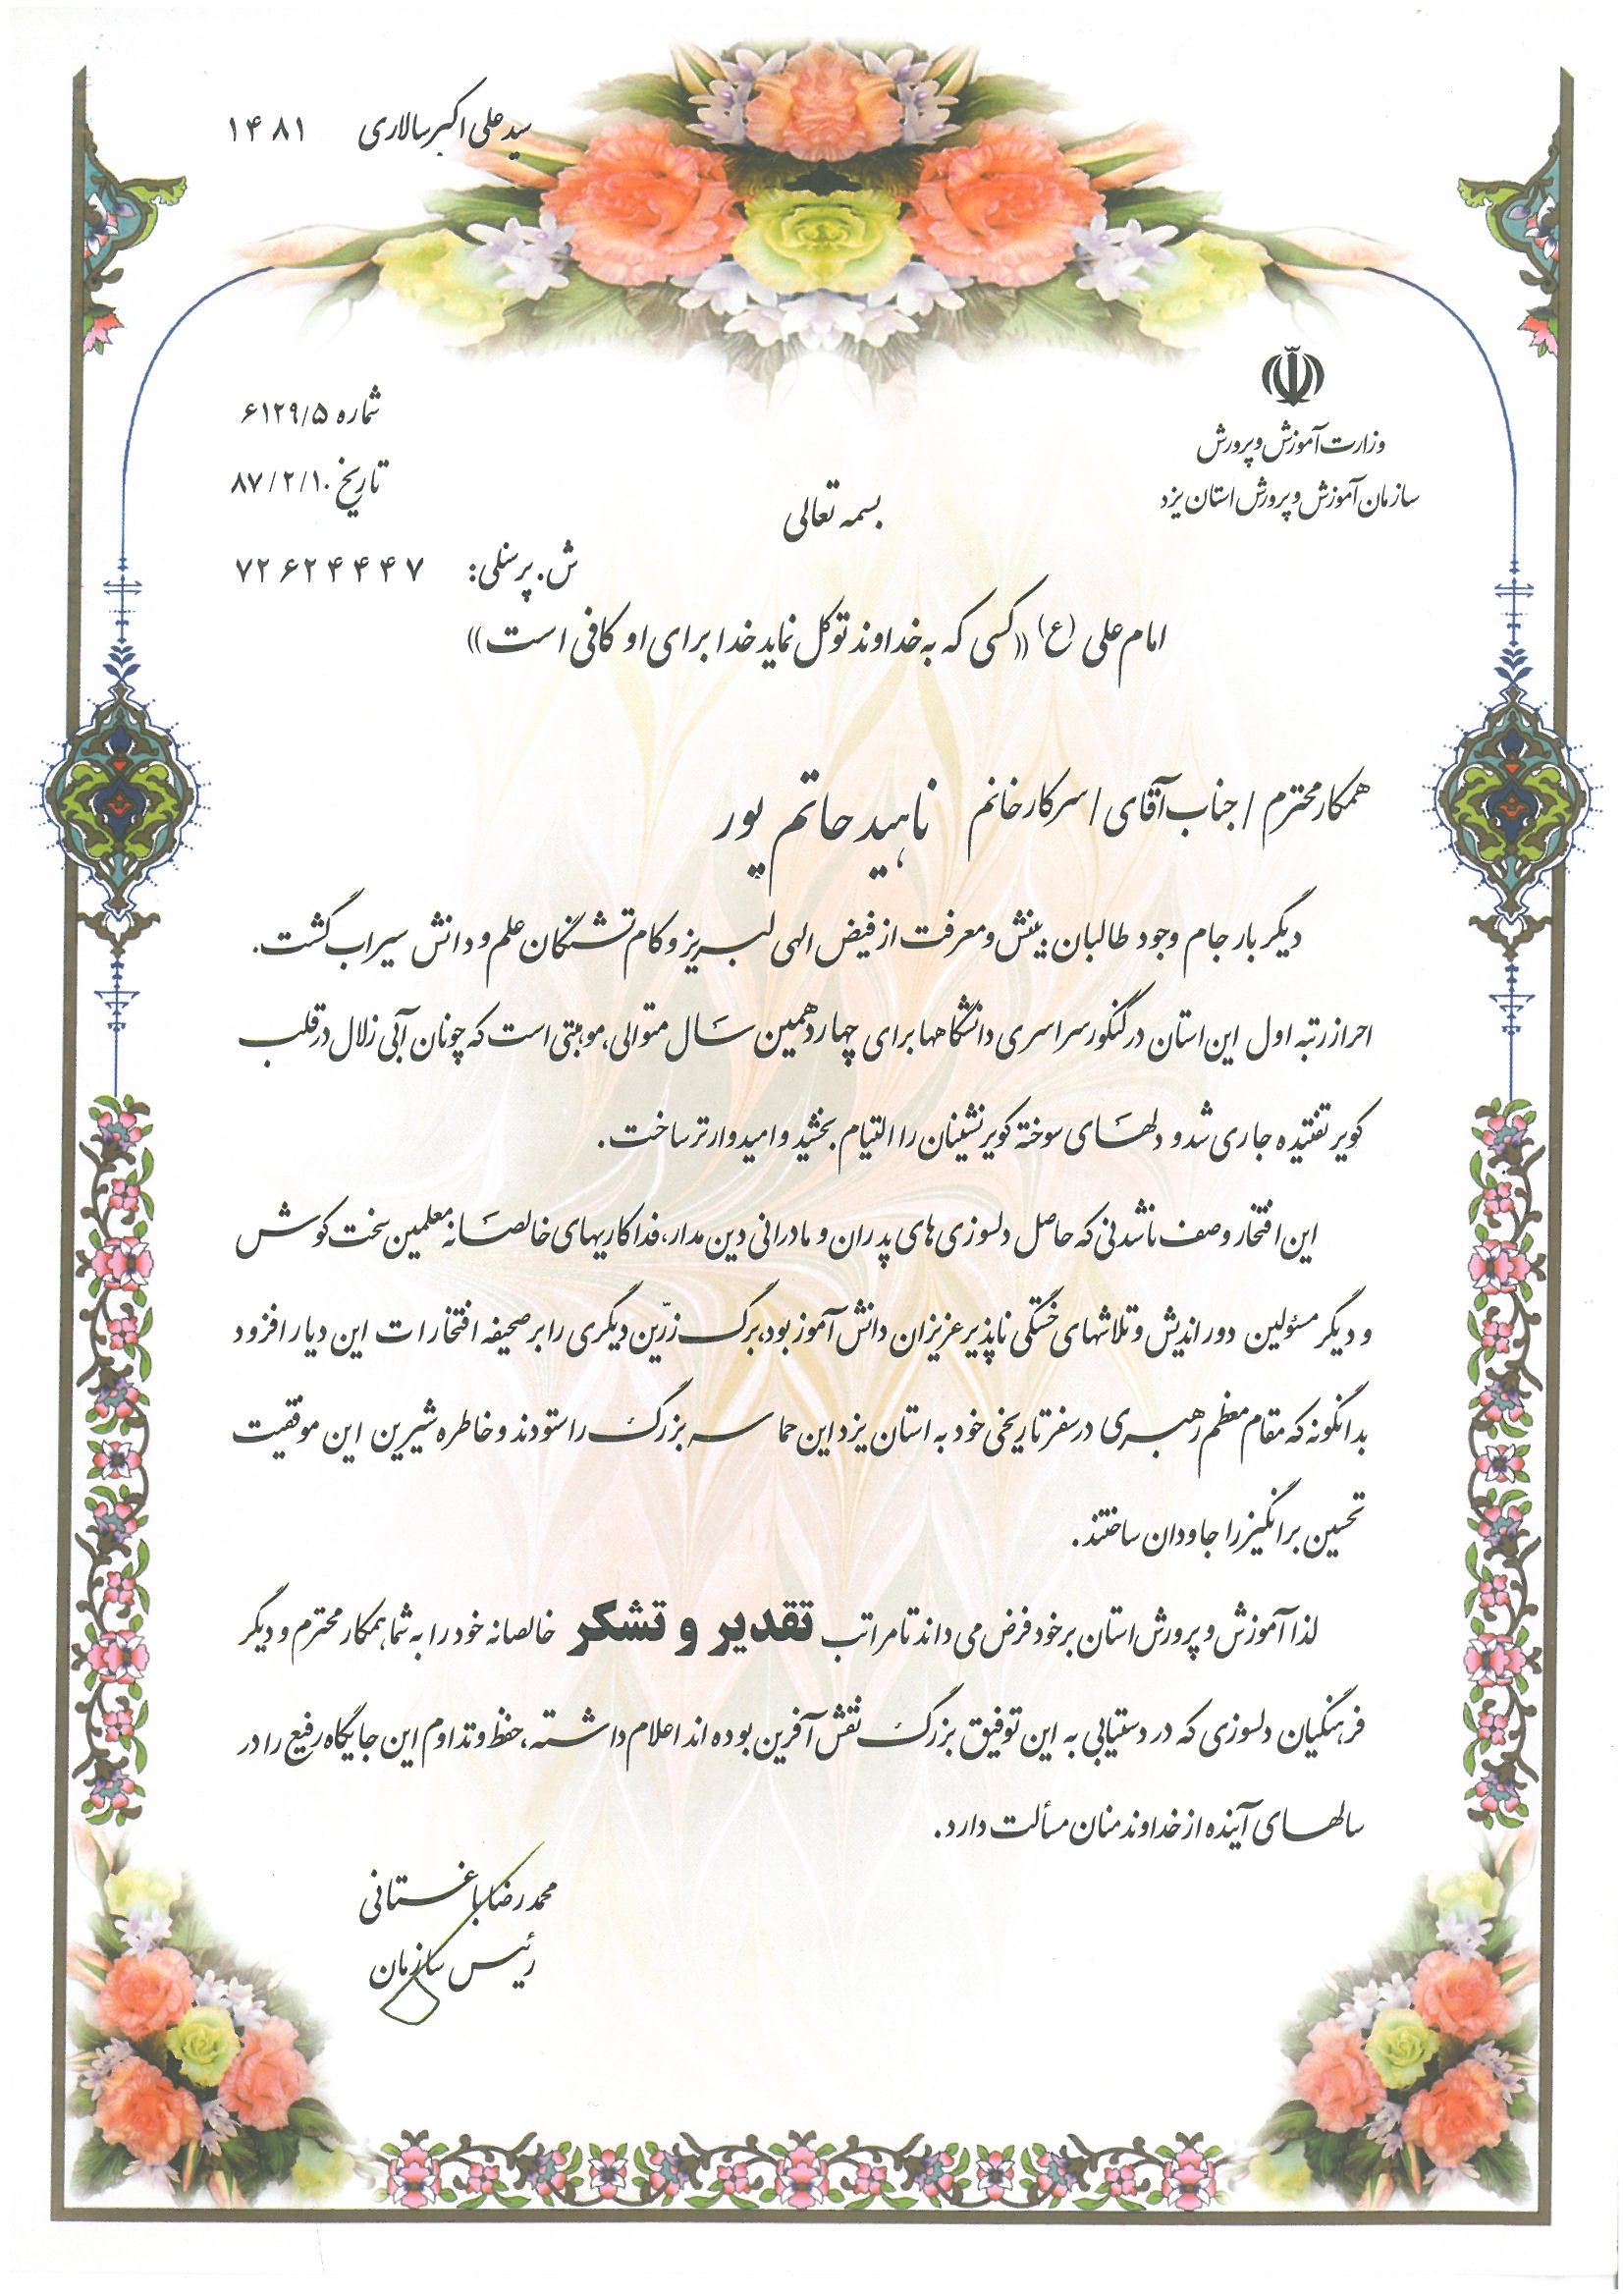 سید علی اکبر سالاری ۱۴۸۱
وزارت آموزش و پرورش
سازمان آموزش و پرورش استان یزد
شماره ۶۱۲۹/۵
تاریخ ۸۷/۲/۱۰
بسمه تعالی
ش. پرسنلی: ۷۲۶۲۴۴۴۷
امام علی (ع) «کسی که به خداوند توکل نماید خدا برای او کافی است»
همکار محترم / جناب آقای / سرکار خانم ناهید حاتم پور
دیگر بار جام وجود طالبان بینش و معرفت از فیض الهی لبریز و کام تشنگان علم و دانش سیراب گشت.
احراز رتبه اول این استان در کنکور سراسری دانشگاهها برای چهاردهمین سال متوالی، موهبتی است که چونان آبی زلال در قلب
کویر تفتیده جاری شد و دلهای سوخته کویرنشینان را التیام بخشید و امیدوارتر ساخت.
این افتخار وصف ناشدنی که حاصل دلسوزی های پدران و مادرانی دین مدار، فداکاریهای خالصانه معلمین سخت کوش
و دیگر مسئولین دوراندیش و تلاشهای خستگی ناپذیر عزیزان دانش آموز بود، برگ زرّین دیگری را بر صحیفه افتخارات این دیار افزود
بدانگونه که مقام معظم رهبری در سفر تاریخی خود به استان یزد این حماسه بزرگ را ستودند و خاطره شیرین این موفقیت
تحسین برانگیز را جاودان ساختند.
لذا آموزش و پرورش استان بر خود فرض می داند تا مراتب تقدیر و تشکر خالصانه خود را به شما همکار محترم و دیگر
فرهنگیان دلسوزی که در دستیابی به این توفیق بزرگ نقش آفرین بوده اند اعلام داشته، حفظ و تداوم این جایگاه رفیع را در
سالهای آینده از خداوند منان مسألت دارد.
محمدرضا باغستانی
رئیس سازمان